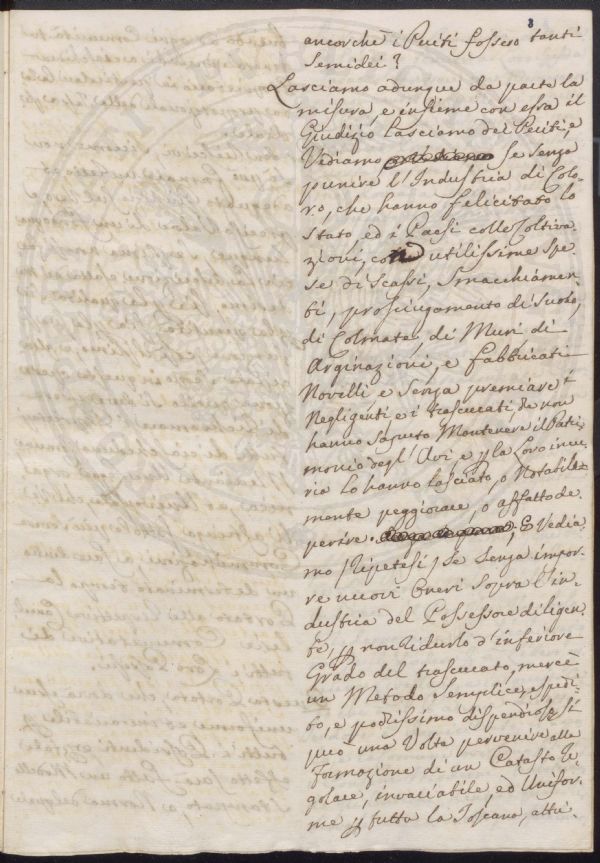 3
ancorchè i Periti fossero tanti
Semidei?
Lasciamo adunque da parte la
misura, e insieme con essa il
Giudizio lasciamo dei Periti, e
Vediamo se senza
punire l'Industria di Colo-
ro, che hanno felicitato lo
Stato ed i Paesi colle Coltiva-
zioni, con utilissime spe-
se di Scassi, Smacchiamen-
ti, prosciugamento di Suolo,
di Colmate, di Muri di
Arginazioni, e fabbricati
Novelli e Senza premiare i
Negligenti e i trascurati, che non
hanno saputo Mantenere il Patri-
monio degl'Avi e p la Loro incu-
ria lo hanno lasciato, o Notabil-
mente peggiorare, o affatto de-
perire. E Vedia-
mo (Ripetesi) se Senza impor-
re nuovi Oneri Sopra l'in-
dustria del Possessore diligen-
te, p non ridurlo d'inferiore
Grado del trascurato, mercè
un Metodo Semplice, spedi-
to, e pochissimo dispendioso si
può una Volta pervenire alla
Formazione di un Catasto re-
golare, invariabile, ed Unifor-
me p tutta la Toscana, attu-